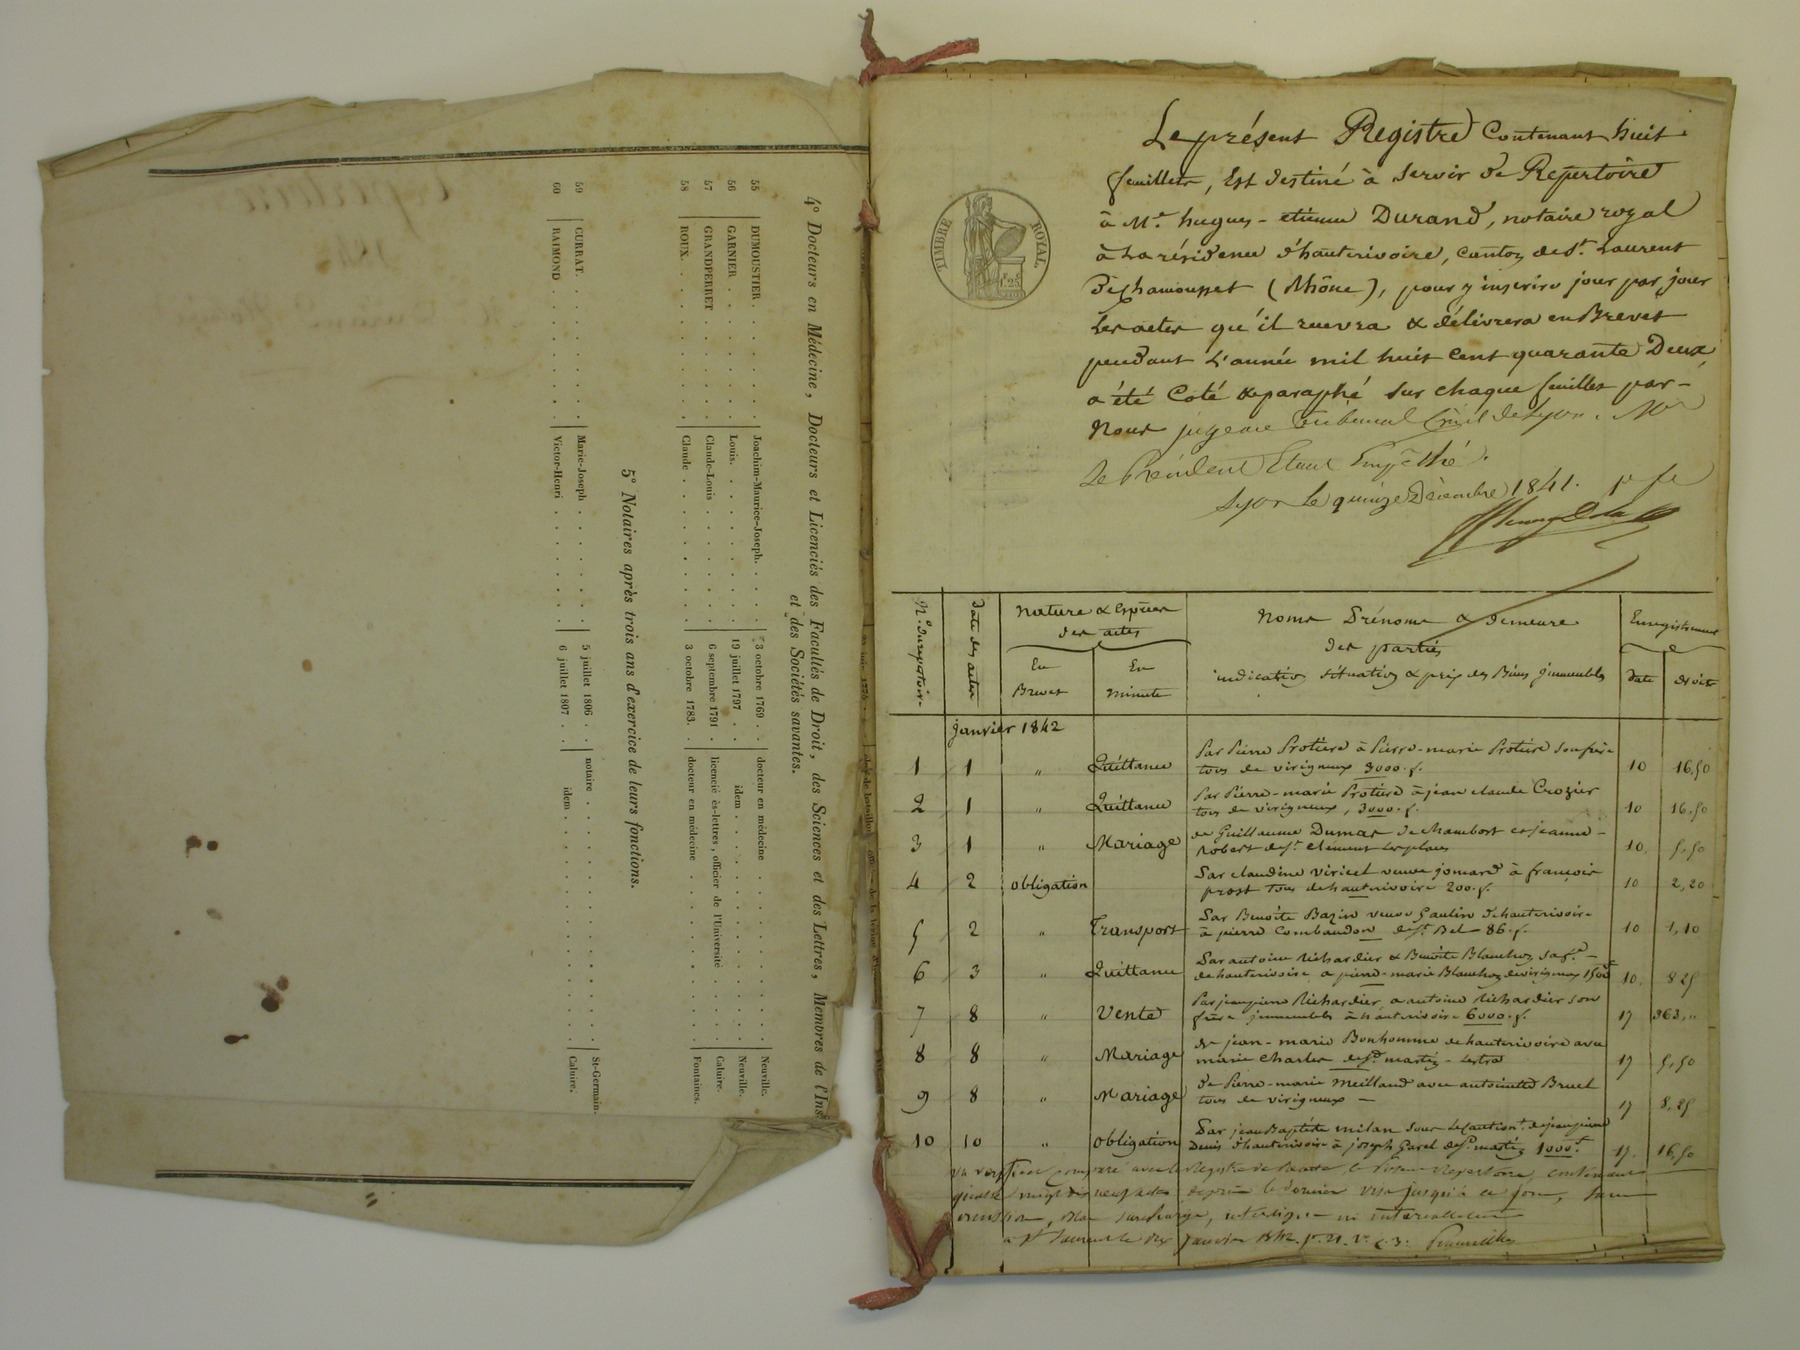 4º Docteurs en Médecine, Docteurs et Licenciés des Facultés de Droit, des Sciences et des Lettres, Membres de l'Ins
et des Sociétés savantes.
55 DUMOUSTIER. Joachim-Maurice-Joseph. 3 octobre 1769. docteur en médecine Neuville.
56 GARNIER. Louis. 19 juillet 1797. idem Neuville.
57 GRANDPERRET. Claude-Louis 6 septembre 1791. licencié ès-lettres, officier de l'Université Caluire.
58 ROUX. Claude 3 octobre 1783. docteur en médecine Fontaines.
5º Notaires après trois ans d'exercice de leurs fonctions.
59 CURRAT. Marie-Joseph 5 juillet 1806. notaire St-Germain.
60 RAIMOND Victor-Henri 6 juillet 1807. idem. Caluire.
TIMBRE ROYAL
1f.25
Le présent Registre contenant huit
feuillets, Est destiné à servir de Repertoire
à Me. hugues-etienne Durand, notaire royal
à La résidence d'hauterivoire, canton de St. Laurent
de Chamousset (Rhône), pour y inscrire jour par jour
Les actes qu'il recevra & délivrera en Brevet
pendant L'année mil huit cent quarante Deux,
a été Coté & paraphé sur chaque feuillet par
Nous juge au Tribunal Civil de Lyon. Mr
Le Président Etant Empêché.
Lyon Le quinze Décembre 1841.
No. du repertoire
Date des actes
nature & Espèces
des actes
En Brevet
En minute
Noms Prénoms & demeure
des parties
indication situation & prix des Biens immeubles
Enregistrement
Date
droits
janvier 1842
1 1 " Quittance Par Pierre Protière à Pierre-marie Protière son frère
tous de virigneux 3000.f. 10 16,50
2 1 " Quittance Par Pierre-marie Protière à jean claude Crozier
tous de virigneux, 3000.f. 10 16,50
3 1 " Mariage de Guillaume Dumas de chambost et jeanne-
Robert de St. clément les places 10. 5,50
4 2 obligation Par claudine viricel veuve jomard à françois
prost tous de hauterivoire 200.f. 10 2,20
5 2 " Transport Par Benoite Bazin veuve Gaulin d'hauterivoire
à pierre Combaudon de St. Bel 86.f. 10 1,10
6 3 " Quittance Par antoine Richardier & Benoite Blanchon sa fe.
de hauterivoire a pierre-marie Blanchon de virigneux 1500f 10. 8 25
7 8 " Vente Par jean pierre Richardier a antoine Richardier son
frère immeubles à hauterivoire 6000.f. 17 363,"
8 8 " Mariage de jean-marie Bonhomme de hauterivoire avec
marie charles de St. martin-Lestra 17 5,50
9 8 " Mariage de Pierre-marie Meilland avec antoinette Bruel
tous de virigneux 17 8,25
10 10 " obligation Par jean Baptiste milan sous le cautiont. de jean pierre
Denis d'hauterivoire à joseph Garel de St. martin 1000f. 17. 16,50
Vu vérifié et comparé avec le Registre de Recette, le présent Repertoire, contenant
vingt dix neuf actes depuis le dernier visa jusqu'à ce jour, sans
omission, surcharge, interligne ni intercallation
à St Laurent le dix janvier 1842.